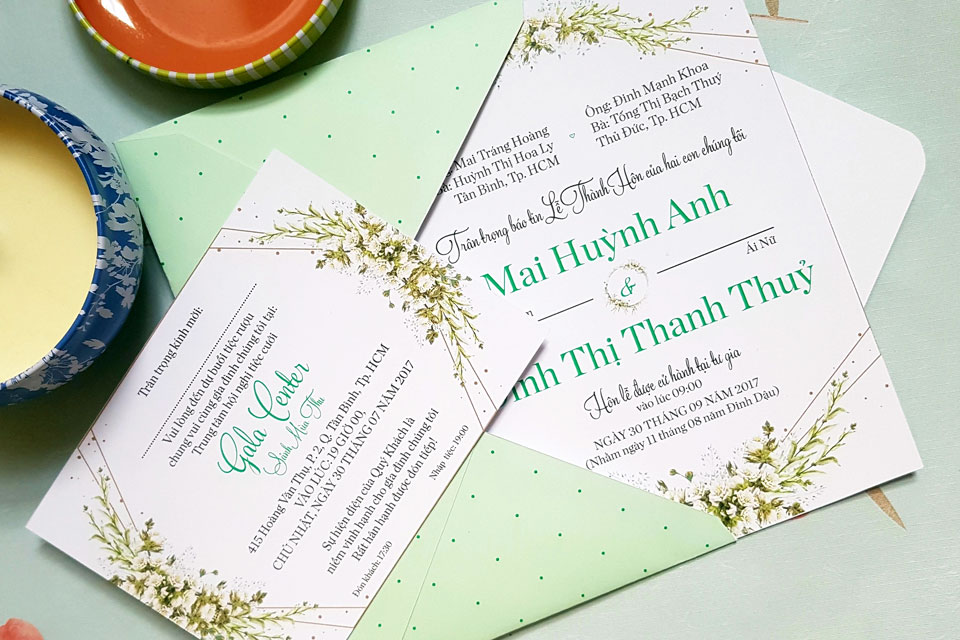 Trân trọng kính mời:
Vui lòng đến dự buổi tiệc rượu
chung vui cùng gia đình chúng tôi tại:
Trung tâm hội nghị tiệc cưới
Gala Center
Sảnh Mùa Thu
415 Hoàng Văn Thụ, P. 2, Q. Tân Bình, Tp. HCM
VÀO LÚC: 19 GIỜ 00,
CHỦ NHẬT, NGÀY 30 THÁNG 07 NĂM 2017
Sự hiện diện của Quý Khách là
niềm vinh hạnh cho gia đình chúng tôi
Rất hân hạnh được đón tiếp!
Đón khách: 17:30
Nhập tiệc: 19:00
Mai Tráng Hoàng
Huỳnh Thị Hoa Ly
Tân Bình, Tp. HCM
Ông: Đinh Mạnh Khoa
Bà: Tống Thị Bạch Thuỷ
Thủ Đức, Tp. HCM
Trân trọng báo tin Lễ Thành Hôn của hai con chúng tôi
Mai Huỳnh Anh
&
Ái Nữ
inh Thị Thanh Thuỷ
Hôn lễ được cử hành tại tư gia
vào lúc 09:00
NGÀY 30 THÁNG 09 NĂM 2017
(Nhằm ngày 11 tháng 08 năm Đinh Dậu)